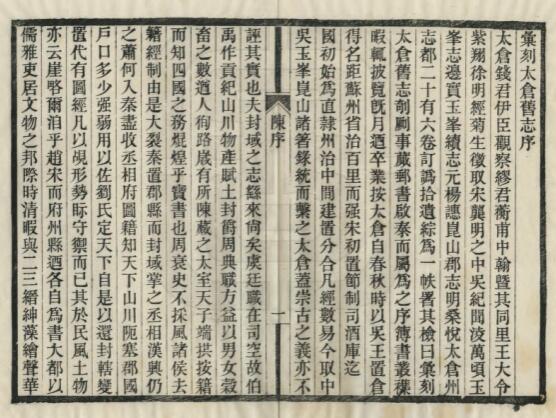 彙刻太倉舊志序
太倉錢君伊臣觀察繆君蘅甫中翰曁其同里王大令
紫翔徐明經菊生徵取宋龔明之中吳紀聞淩萬頃玉
峯志邊實玉峯續志元楊譓崑山郡志明桑悅太倉州
志都二十有六卷訂譌拾遺綜爲一帙署其檢曰彙刻
太倉舊志剞劂事蕆郵書啟泰而屬爲之序簿書叢襍
暇輒披覽旣月迺卒業按太倉自春秋時以吳王置倉
得名距蘇州省治百里而强宋初置節制司酒庫迄
國初始爲直隸州治中閒建置分合凡經數易今取中
吳玉峯崑山諸箸錄統而繫之太倉蓋崇古之義亦不
陳序
一
誣其實也夫封域之志繇來尙矣虞廷職在司空故伯
禹作貢紀山川物產賦土封爵周典職方益以男女穀
畜之數遒人徇路歲有所陳藏之太室天子端拱按籍
而知四國之務焜煌乎寶書也周衰史不採風諸侯去
籍經制由是大裂秦置郡縣而封域掌之丞相漢興仍
之蕭何入秦盡收丞相府圖籍知天下山川阨塞郡國
戶口多少强弱用以佐劉氏定天下自是以還封轄變
置代有圖經凡以覘形勢眎守禦而已其於民風土物
亦云崖略爾洎乎趙宋而府州縣迺各自爲書大都以
儒雅吏居文物之邦際時清暇與二三縉紳藻繪聲華